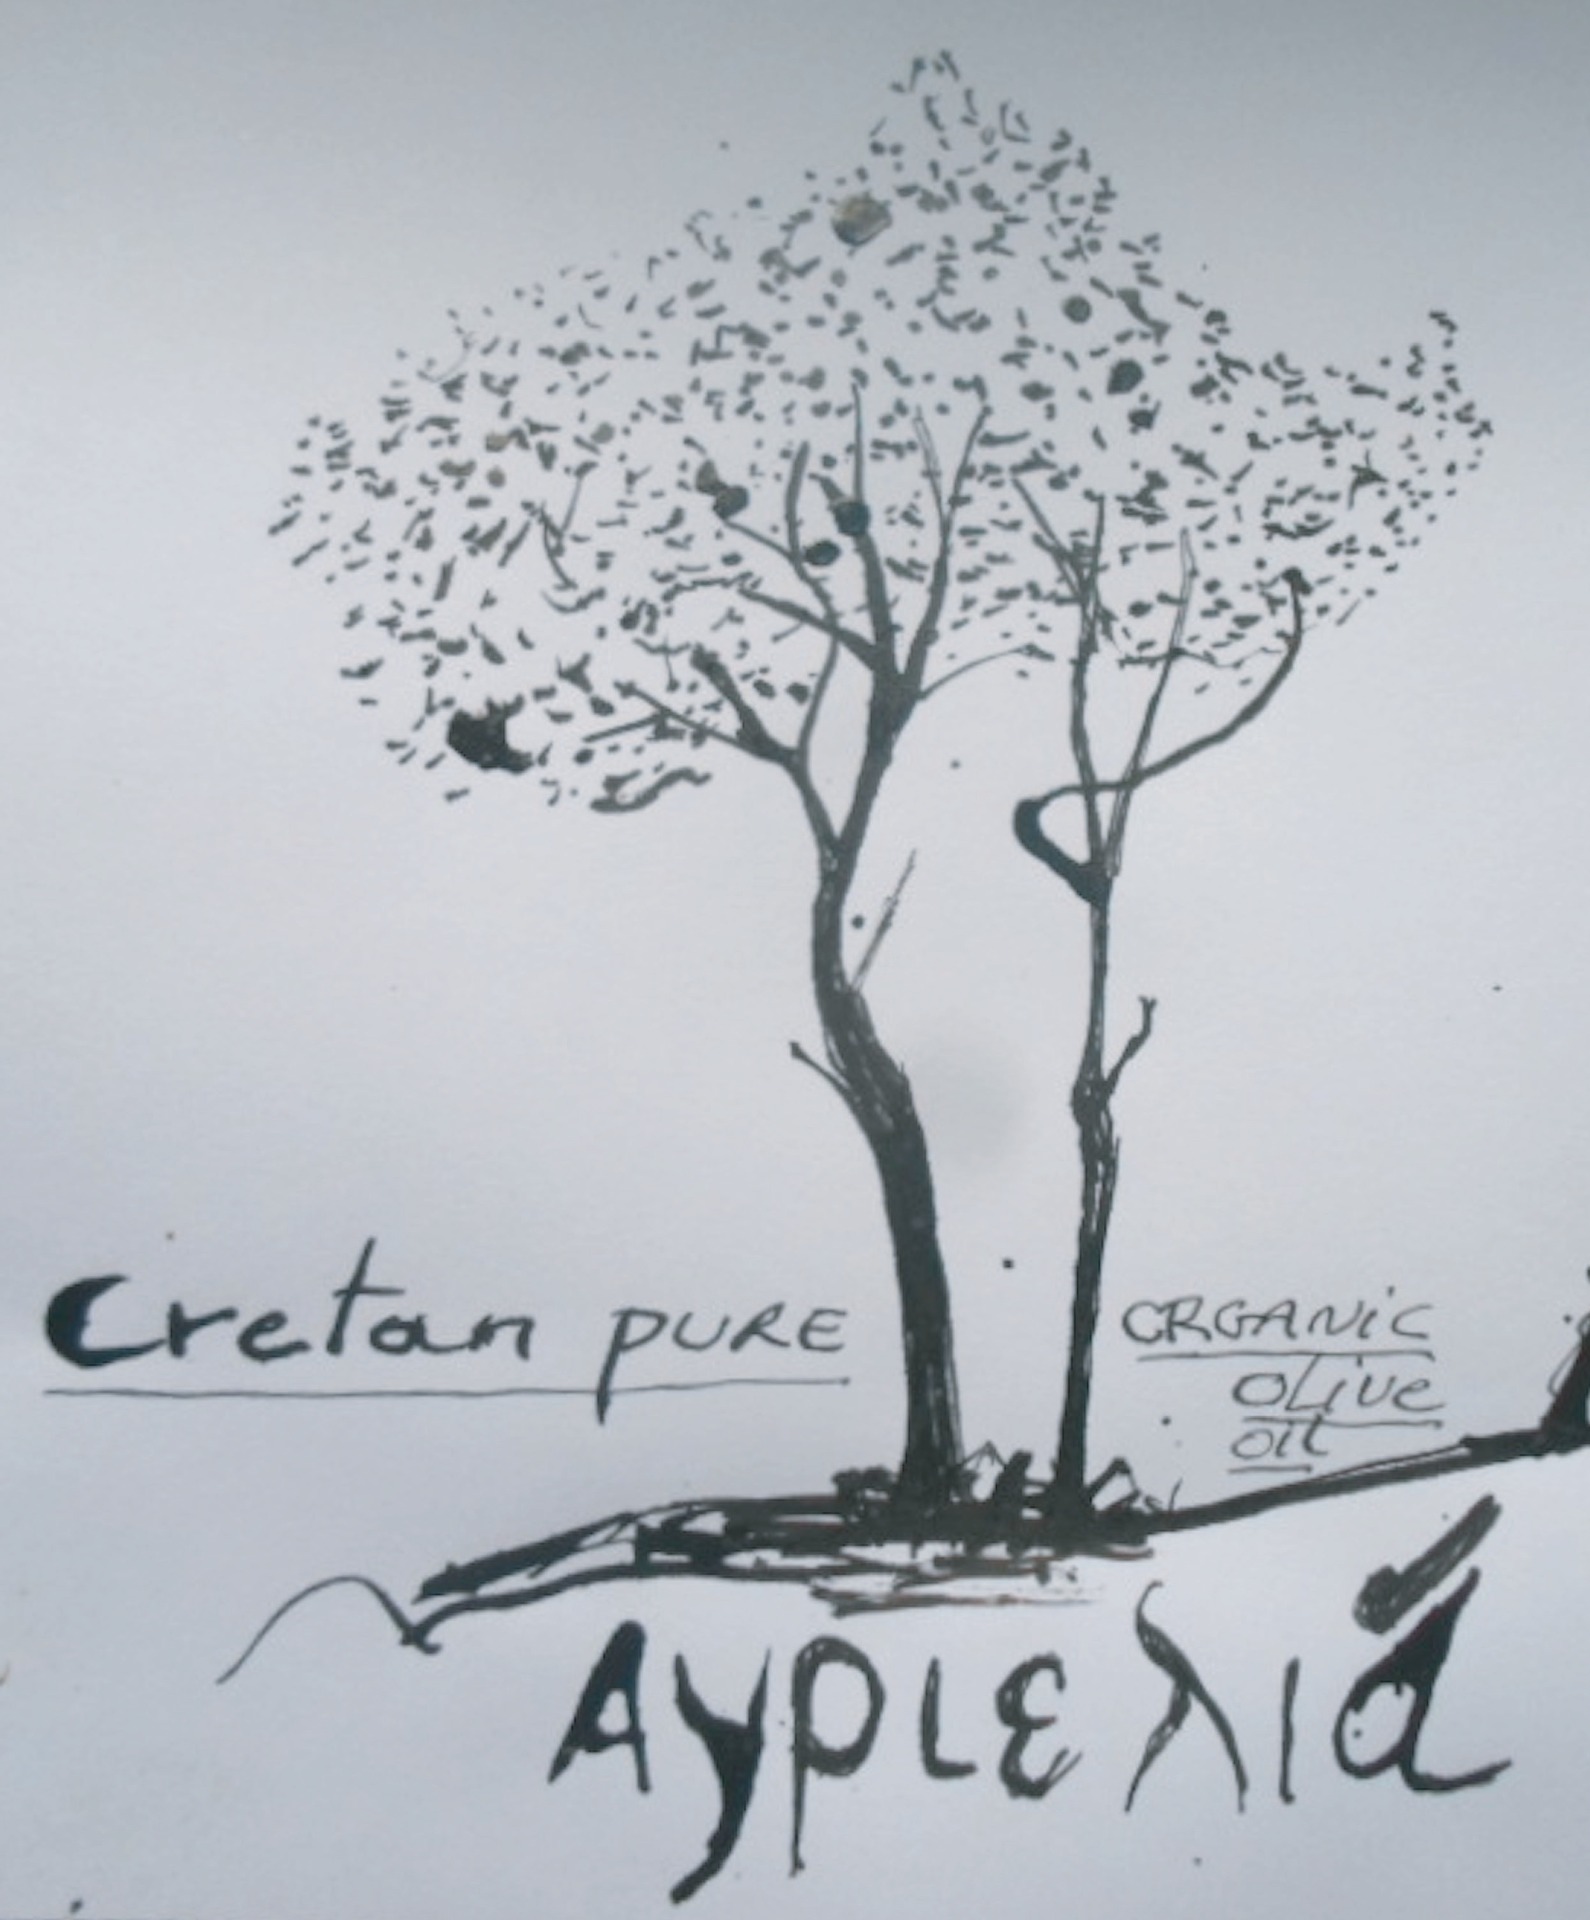 Cretan PURE
ORGANIC
olive
oil
Αγριελιά